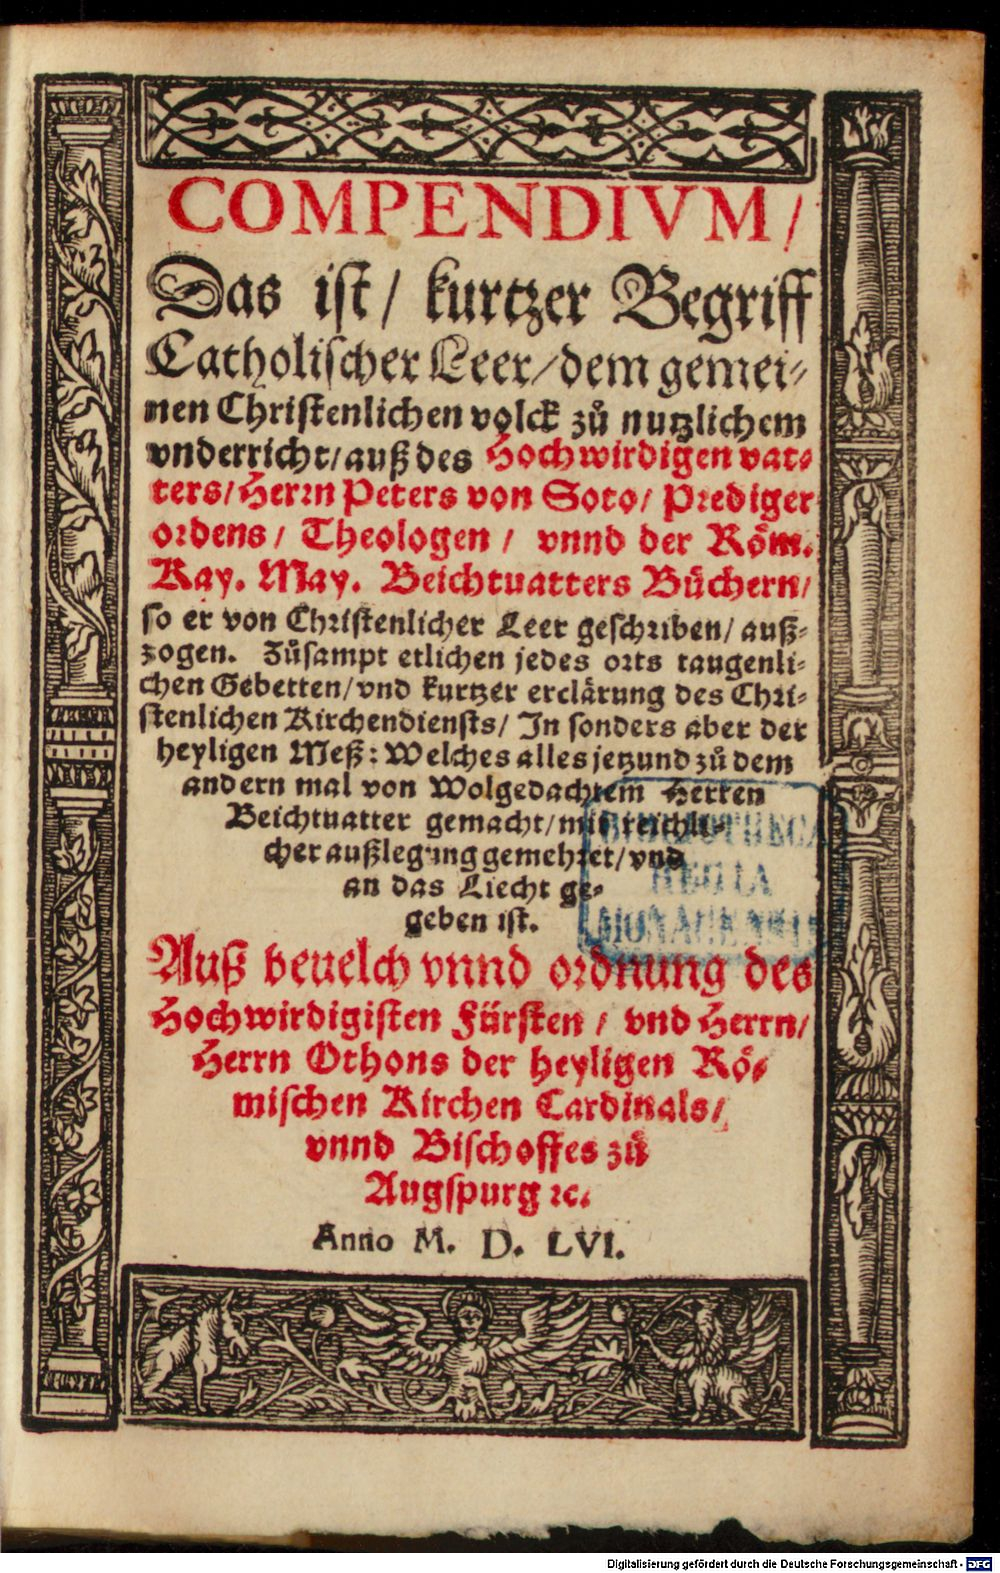 COMPENDIVM/
Das ist/ kurtzer Begriff
Catholischer Leer/dem gemei-
nen Christenlichen volck zů nutzlichem
vnderricht/auß des Hochwirdigen vat-
ters/Herrn Peters von Soto/ Prediger
ordens/ Theologen/ vnnd der Röm.
Kay. May. Beichtuatters Büchern/
so er von Christenlicher Leer geschriben/ auß-
zogen. Zůsampt etlichen jedes orts taugenli-
chen Gebetten/vnd kurtzer erclärung des Chri-
stenlichen Kirchendiensts/ In sonders aber der
heyligen Meß: Welches alles jetzund zů dem
andern mal von Wolgedachtem Herren
Beichtuatter gemacht/mit reichli-
cher außlegung gemehret/vnd
an das Liecht ge-
geben ist.
BIBLIOTHECA
REGIA
MONACENSIS
Auß beuelch vnnd ordnung des
Hochwirdigisten Fürsten/ vnd Herrn/
Herrn Othons der heyligen Rö-
mischen Kirchen Cardinals/
vnnd Bischoffes zů
Augspurg ꝛc.
Anno M. D. LVI.
Digitalisierung gefördert durch die Deutsche Forschungsgemeinschaft - DFG